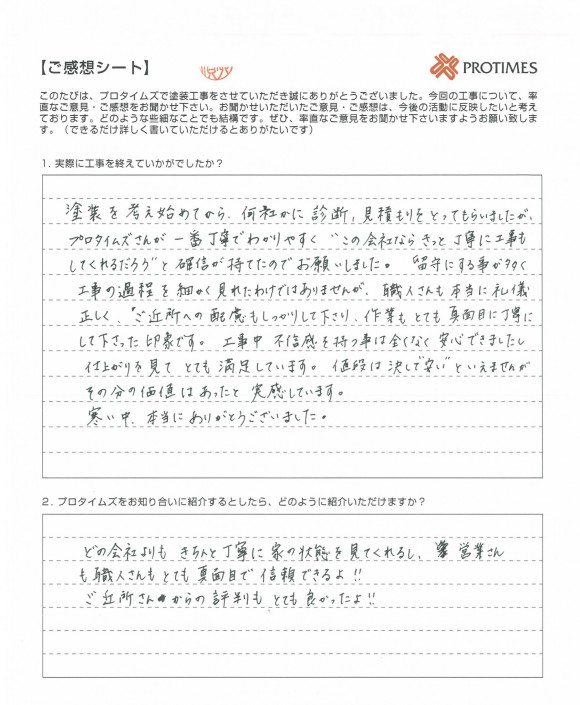 【ご感想シート】
PROTIMES
このたびは、プロタイムズで塗装工事をさせていただき誠にありがとうございました。今回の工事について、率
直なご意見・ご感想をお聞かせ下さい。お聞かせいただいたご意見・ご感想は、今後の活動に反映したいと考え
ております。どのような些細なことでも結構です。ぜひ、率直なご意見をお聞かせ下さいますようお願い致しま
す。（できるだけ詳しく書いていただけるとありがたいです）
1．実際に工事を終えていかがでしたか？
塗装を考え始めてから、何社かに診断、見積もりをとってもらいましたが、
プロタイムズさんが一番丁寧でわかりやすく“この会社ならきっと丁寧に工事も
してくれるだろう”と確信が持てたのでお願いしました。留守にする事が多く
工事の過程を細かく見れたわけではありませんが、職人さんも本当に礼儀
正しく、ご近所への配慮もしっかりして下さり、作業もとても真面目に丁寧に
して下さった印象です。工事中不信感を持つ事は全くなく安心できましたし
仕上がりを見てとても満足しています。値段は決して“安い”といえませんが
その分の価値はあったと実感しています。
寒い中、本当にありがとうございました。
2．プロタイムズをお知り合いに紹介するとしたら、どのように紹介いただけますか？
どの会社よりもきちんと丁寧に家の状態を見てくれるし、営業さん
も職人さんもとても真面目で信頼できるよ!!
ご近所さんからの評判もとても良かったよ!!